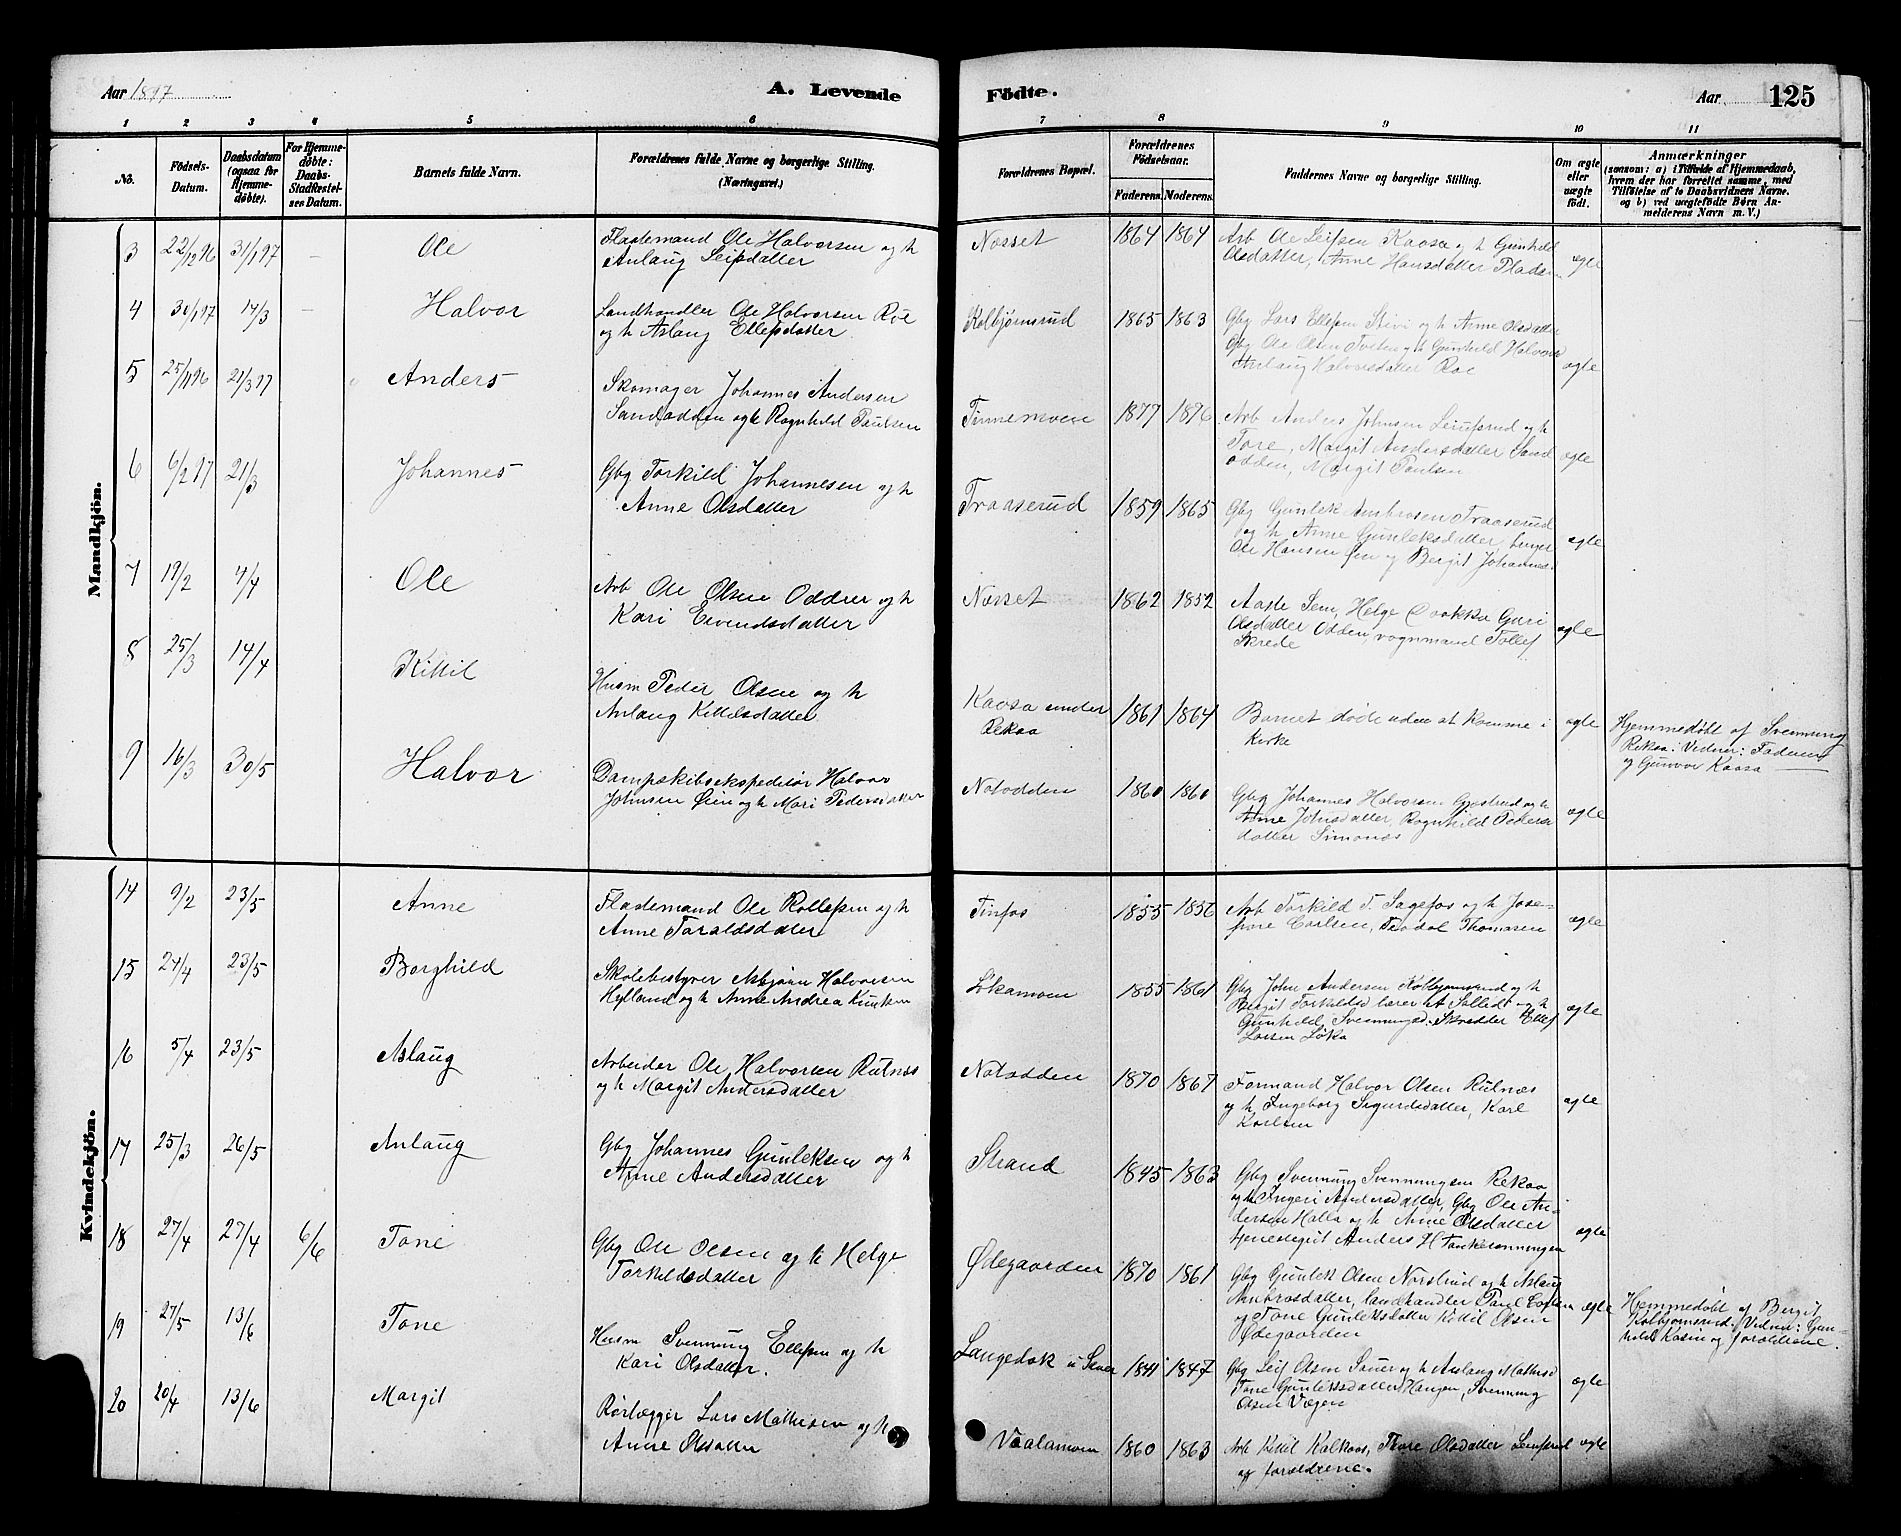 Aar 1897
A. Levende
Födte.
Aar
125
1 2 3 4 5 6 7 8 9 10 11
No.
Födsels-
Datum.
Daabsdatum
(ogsaa for
Hjemme-
döbte).
For Hjemme-
døbte:
Daabs-
Stadfæstel-
ses Datum.
Barnets fulde Navn.
Forældrenes fulde Navne og borgerlige Stilling.
(Næringsvei.)
Forældrenes Bopæl.
Forældrenes
Födselsaar.
Faderens. Moderens.
Faddernes Navne og borgerlige Stilling.
Om ægte
eller
uægte
födt.
Anmærkninger
(saasom: a) i Tilfælde af Hjemmedaab,
hvem der har forrettet samme, med
Tilföielse af to Daabsvidners Navne.
og b) ved uægtefödte Børn An-
melderens Navn m. V.)
Mandkjön.
3 22/12 96 31/1 97 – Ole
Flaatemand Ole Halvorsen og h
Anlaug Leifsdatter
Næsset 1864 1864
Arb Ole Leifsen Kaasa og h Gunhild
Olsdatter, Anne Hansdatter
ægte
4 30/1 97 14/3 – Halvor
Landhandler Ole Halvorsen Roe
og h Aslaug Ellefsdatter
Kolbjørnsrud 1865 1863
Gbg Lars Ellefsen Stivi og h Anne Olsdatter
Gbg Ole Olsen Tveten og h Gunhild Halvors
Anlaug Halvorsdatter Roe
ægte
5 25/11 96 21/3 97 Anders
Skomager Johannes Andersen
Sandodden og h Ragnhild Paulsen
Tinnemoen 1877 1876
Arb Anders Johnsen Leirfsrud og h
Tore, Margit Andersdatter Sand
odden, Margit Paulsen
ægte
6 6/2 97 21/3 Johannes
Gbg Torkild Johannesen og h
Anne Olsdatter
Traaserud 1859 1865
Gbg Gunlek Ambrosen Traaserud
og h Anne Gunleksdatter
Ole Hansen Øen og Bergit Johannes.
ægte
7 19/2 4/4 Ole
Arb Ole Olsen Oddrer og h
Kari Eivendsdatter
Næsset 1862 1852
Aaste Sem, Helge Guri
Olsdatter Odden, vognmand Tollef
Skrede
ægte
8 25/3 14/4 Kittil
Husm Peder Olsen og h
Anlaug Kittilsdatter
Kaasa under
Rekaa
1861 1864
Barnet døde uden at komme i
Kirke
ægte
Hjemmedøbt af Svennung
Rekaa: Vidner: Faderen
og Gunvor Kaasa
9 16/3 30/5 Halvor
Dampskibsekspeditør Halvor
Johnsen Øien og h Mari Pedersdatter
Notodden 1860 1860
Gbg Johannes Halvorsen Gjestrud og h
Anne Johnsdatter, Ragnhild Peders
datter Simonæs
ægte
Kvindekjön.
14 9/2 23/5 Anne
Flaatemand Ole Rollefsen og h
Anne Taraldsdatter
Tinfos 1855 1856
Arb Torkild T. Sagefos og h Jose-
fine Carlsen, Teodol Thomasen
ægte
15 24/4 23/5 Borghild
Skolebestyrer Asbjørn Halvorsen
Hylland og h Anne Andrea Knutsen
Løkamoen 1855 1861
Gbg John Andersen Kolbjørnsrud og h
Bergit Torkildsd lærer A Sollid og h
Gunhild Svenningsd. Skrædder Ellef
Larsen Løka
ægte
16 5/4 23/5 Aslaug
Arbeider Ole Halvorsen Rutnæs
og h Margit Andersdatter
Notodden 1870 1867
Formand Halvor Olsen Rutnæs
og h, Ingeborg Sigurdsdatter, Karl
Karlsen
ægte
17 25/3 26/5 Anlaug
Gbg Johannes Gunleksen og h
Anne Andersdatter
Strand 1845 1863
Gbg Svennung Svennungsen Rekaa
og h Ingeri Andersdatter, Gbg Ole An-
dersen Halla og h Anne Olsdatter
tjenestegut Anders H Tankerønningen
ægte
18 27/4 27/4 6/6 Tone
Gbg Ole Olsen og h Helge
Torkildsdatter
Ødegaarden 1870 1861
Gbg Gunlek Olsen Norstrud og h Aslaug
Ambrosdatter, landhandler Paul
og Tone Gunleksdatter Kittil Olsen
Ødegaarden
ægte
Hemmedøbt af Bergit
Kolbjørnsrud: Vidner: Gun-
hild Kasin og forældrene.
19 27/5 13/6 Tone
Husm Svennung Ellefsen og h
Kari Olsdatter.
Langedok u Sem 1841 1847
Gbg Leif Olsen Sauer og h Anlaug Mathisd
Tone Gunleksdatter Haugen, Svennung
Olsen Vægen
ægte
20 20/4 13/6 Margit
Rørlægger Lars Mathisen og h
Anne Olsdatter
Vaalamoen 1860 1863
Arb Kittil Kalkaas, Thore Olsdatter Leirfsrud
og forældrene.
ægte